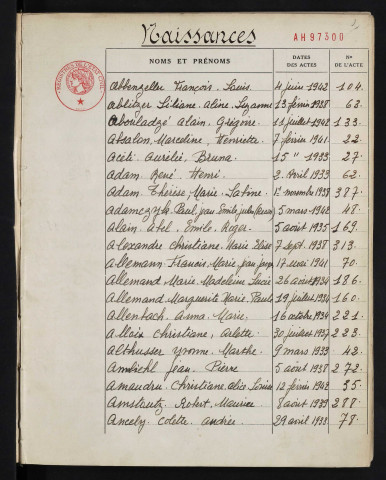 Naissances
AH97300
1
NOMS ET PRÉNOMS DATES DES ACTES N° DE L'ACTE
Abbenzeller François, Louis 4 juin 1942 104.
Ablitzer Liliane, Aline, Suzanne 13 février 1938 62.
Abouladzé Alain, Grégoire 11 juillet 1942 133.
Absalon, Marceline, Henriette 7 février 1941 22.
Aceti Aurélie, Bruna 15 " 1933 27.
Adam René, Henri 2 Avril 1933 62.
Adam Thérèse, Marie 1er novembre 1938 387.
Adamczyk Paul, Jean Emile, 5 mars 1942 48.
Alain Abel, Emile, Roger 5 août 1935 169.
Alexandre Christiane, Marie Elise 7 sept. 1938 313.
Allemann Francis, Marie, Jean 17 mai 1941 70.
Allemand, Marie, Madeleine Lucie 26 août 1934 186.
Allemand, Marguerite Marie, Paule 19 juillet 1934 160.
Allenbach, Anna, Marie 16 octobre 1934 221.
Allaix Christiane, Arlette 30 juillet 1937 223.
Althusser Yvonne, Marthe 9 mars 1933 42.
Ambiehl Jean, Pierre 5 août 1938 272.
Amaudru, Christiane, Alice, Louise 12 février 1942 35.
Amstoutz, Robert, Maurice 8 août 1939 288.
Ancely Colette, Andrée 29 avril 1933 78.